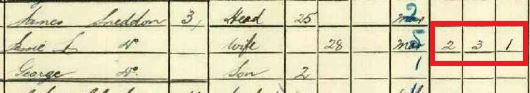 James Sneddon 3, Head 25 Mar 2
L Do Wife 28 Mar 5 2 3 1
George Do Son 2 1